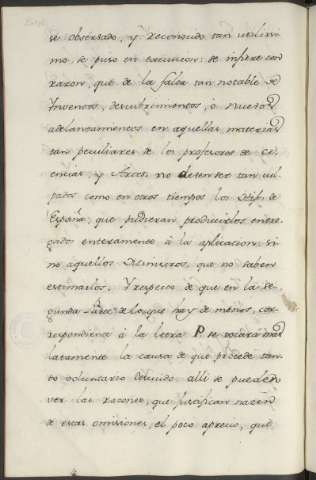 se observado, y reconocido tan utilissi-
mo se puso en execucion: se infiere con
razon, que de la falta tan notable de
Inventos, descubrimientos, ó nuevos
adelantamientos en aquellas materias
tan peculiares de los profesores de ci-
encias, y Artes, no desentes tan cul-
pados como en otros tiempos los de
España, que pudieran producirlos entre-
gados enteramente á la aplicacion, si-
no aquellos Ministros, que no saben
estimarlos. Y respecto de que en la se-
gunda parte de lo que hay de menos, cor-
respondiente á la letra P. se tocará mas
latamente la causa de que procede tan-
to voluntario descuido, alli se pueden
ver las razones, que justifican nacen
de estas omisiones, el poco aprecio, que